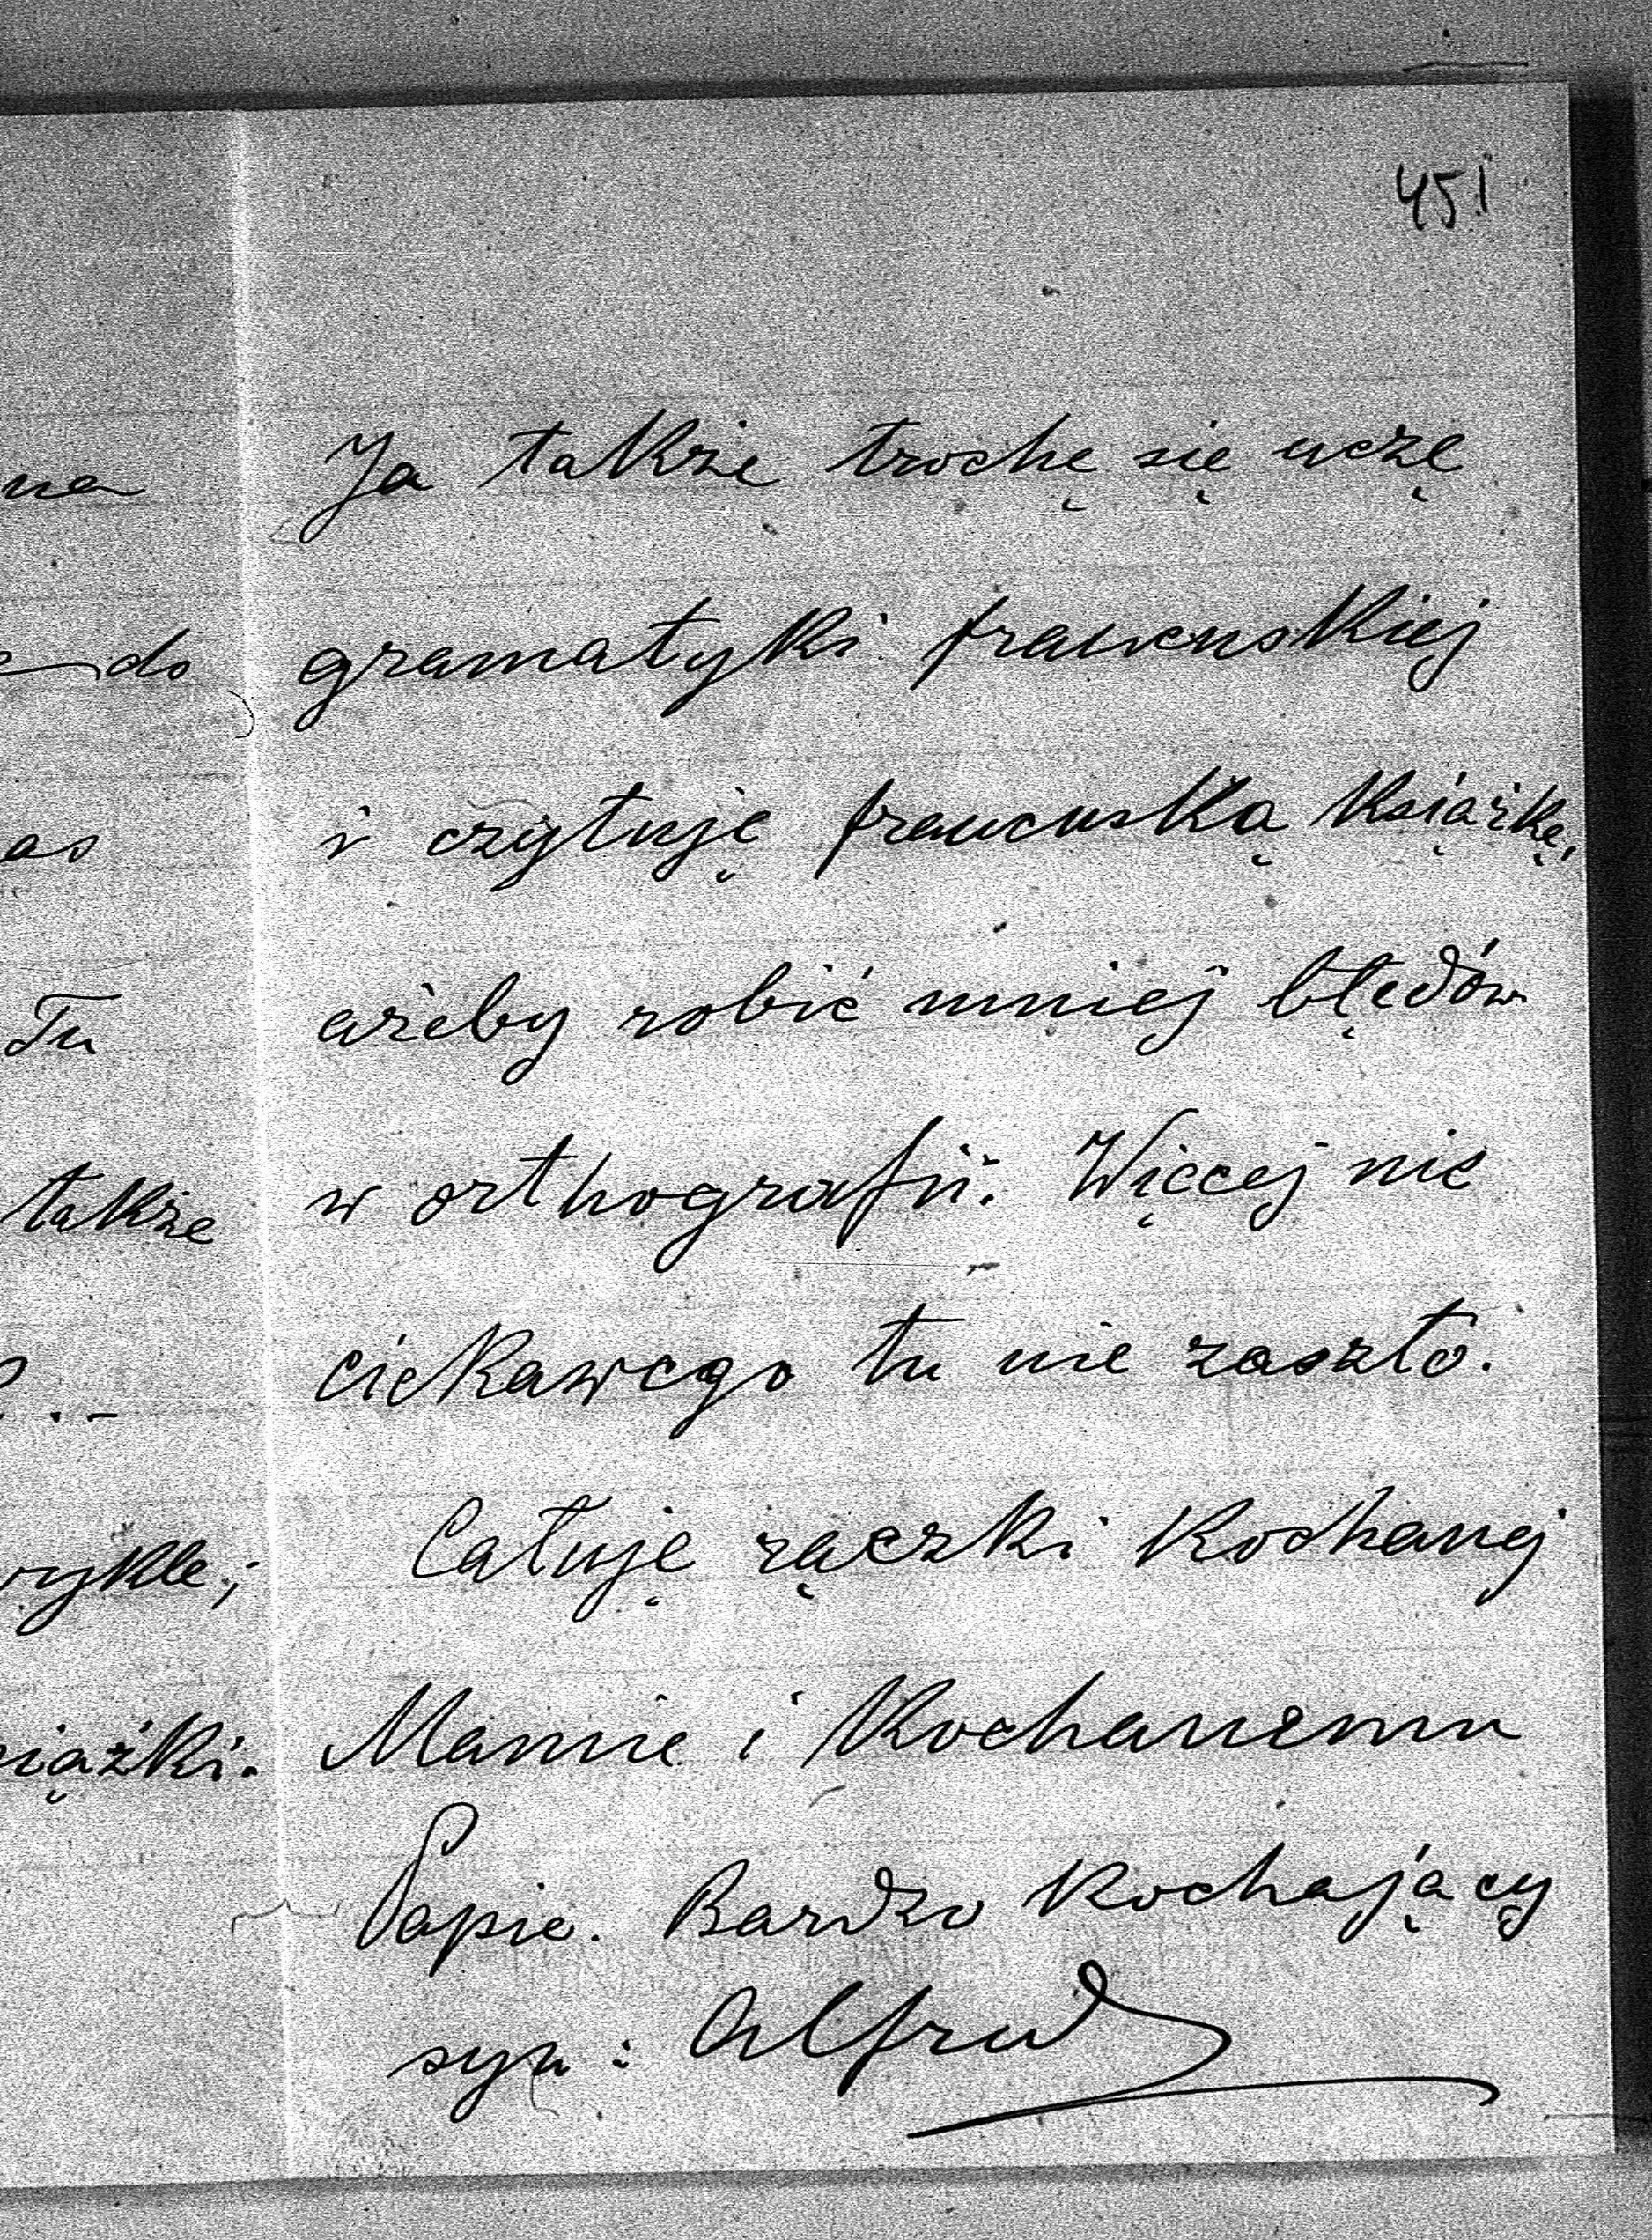 451
Ja także trochę się uczę
gramatyki francuskiej
i czytuję francuską książkę,
ażeby robić mniej błędów
w orthografii. Więcej nic
ciekawego tu nie zaszło.
Całuję rączki kochanej
Mamie i kochanemu
Papie. Bardzo kochający
syn: Alfred
na
do
as
Tu
także